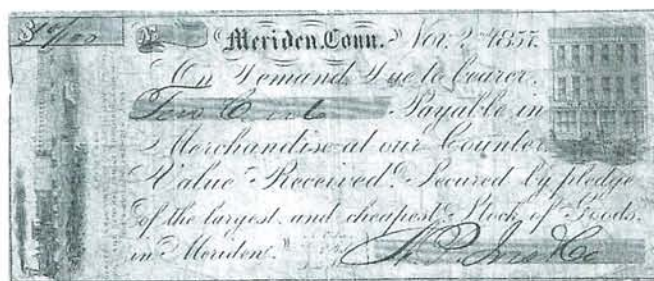 $ 10/100
Meriden, Conn. Nov. 2 1857.
On Demand, Due to bearer,
Ten Cents Payable in
Merchandise at our Counter
Value Received. Secured by pledge
of the largest and cheapest Stock of Goods,
in Meriden. & Co